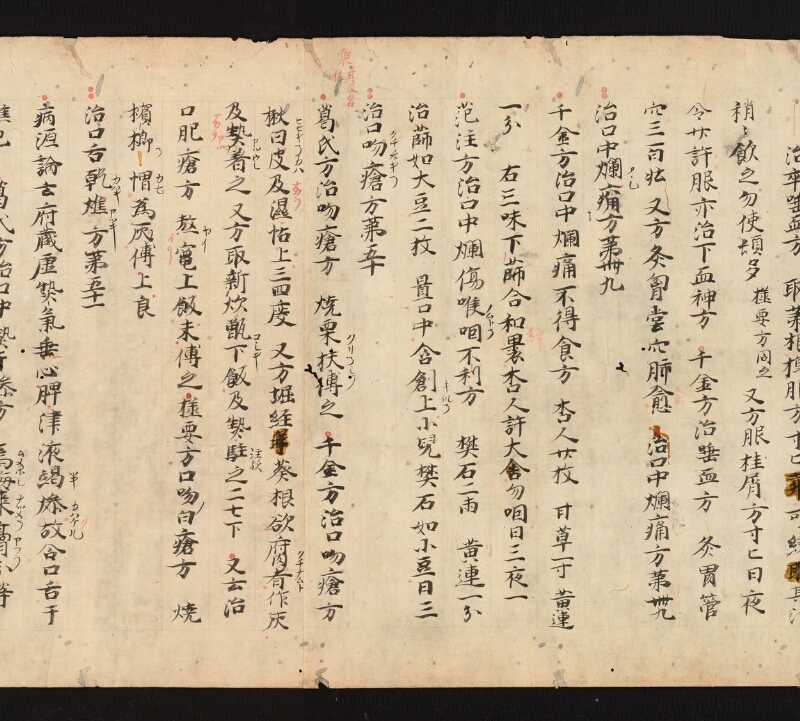 治卒唾血方 取茱根擣服方寸匕 可絞取其汁
稍〻飲之勿使頓多 極要方同之 又方服桂屑方寸匕日夜
令廿許服亦治下血神方 千金方治唾血方 灸胃管
穴三百壮 又方灸胷堂穴肺愈 治口中爛痛方第卌九
治口中爛痛方第卌九
千金方治口中爛痛不得食方 杏人廿枚 甘草一寸 黄連
一分 右三味下篩合和裹杏人許大含勿咽日三夜一
范汪方治口中爛傷喉咽不利方 樊石二兩 黄連一分
治篩如大豆二枚 置口中含創上小兒樊石如小豆日三
治口吻瘡方第五十
葛氏方治吻瘡方 燒栗扶傅之 千金方治口吻瘡方
楸白皮及濕怗上三四度 又方堀経年葵根欲腐者作灰
及熱著之 又方取新炊甑下飯及熱駐之二七下 又云治
口肥瘡方 熬竈上飯末傅之 極要方口吻白瘡方 燒
檳榔 為灰傅上良
治口舌乾燋方第五十一
病源論云府蔵虚熱氣乗心脾津液竭燥故令口舌干
燋也 葛氏方治口中熱干燥方 烏梅棗膏分等